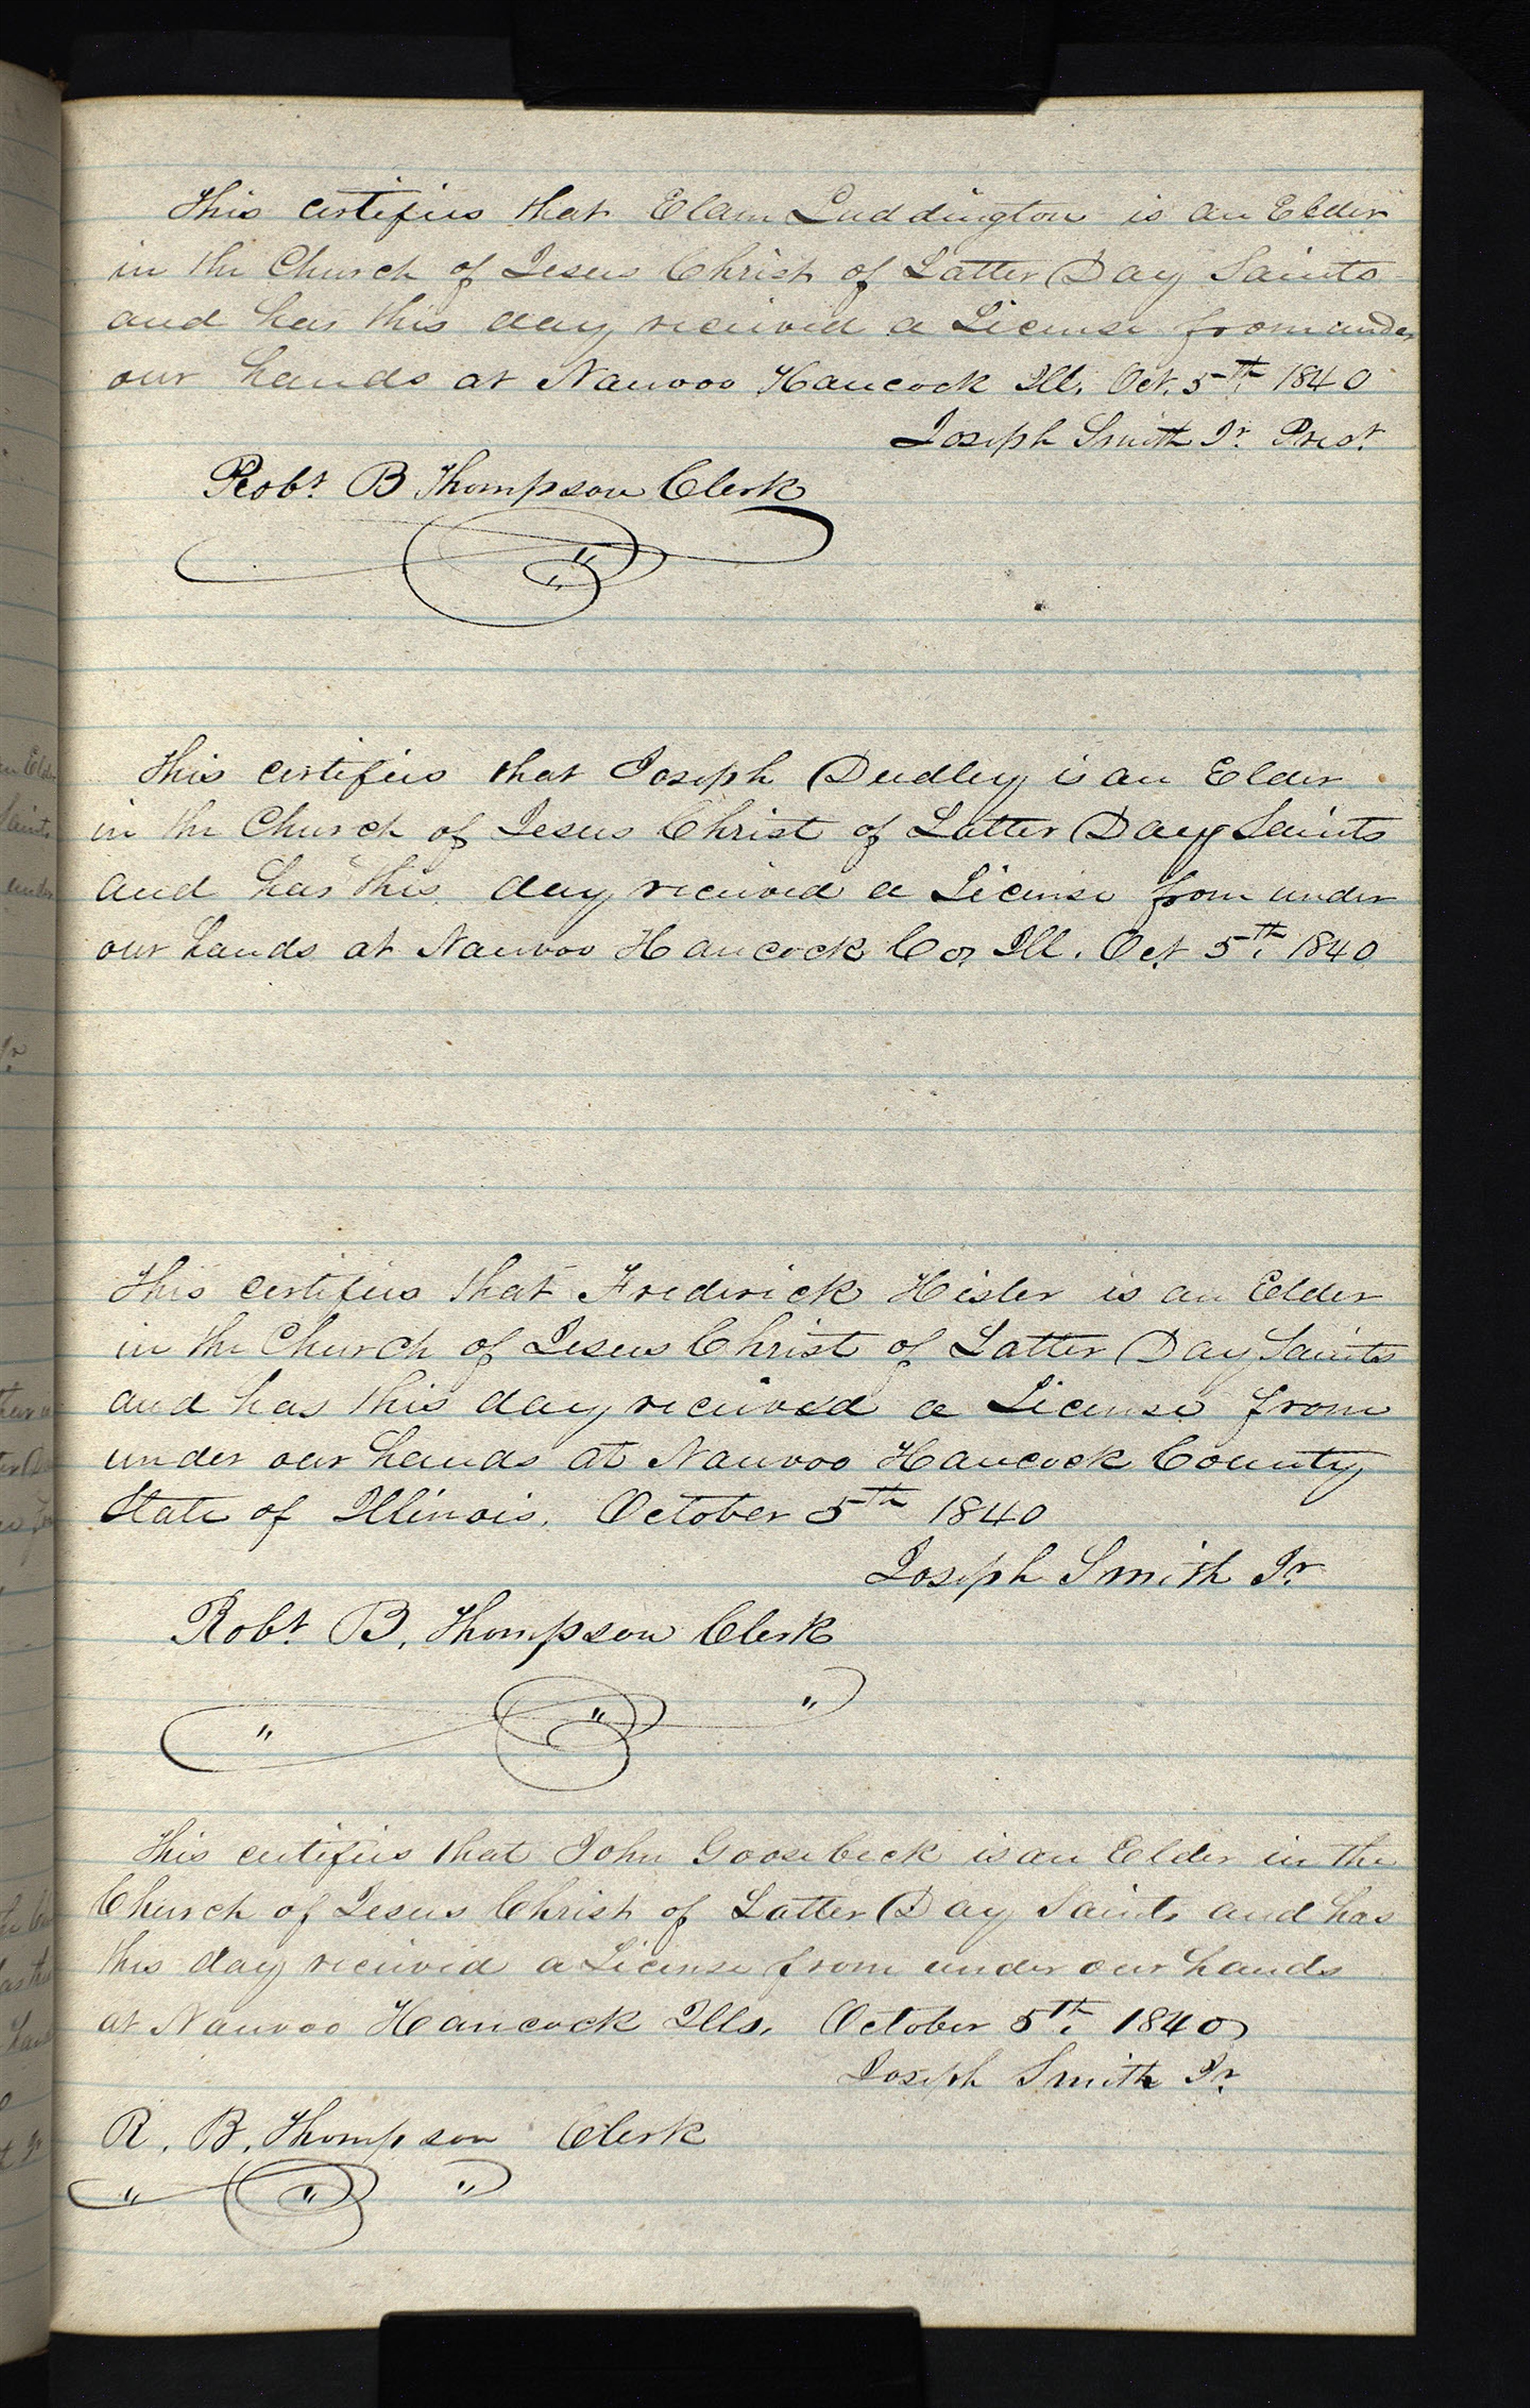 This certifies that Elam Luddington is an Elder
in the Church of Jesus Christ of Latter Day Saints
and has this day received a License from under
our hands at Nauvoo Hancock Ill. Oct. 5th 1840
Joseph Smith Jr. Prest
Robt B Thompson Clerk
This certifies that Joseph Dudley is an Elder
in the Church of Jesus Christ of Latter Day Saints
and has this day received a License from under
our hands at Nauvoo Hancock Co, Ill. Oct 5th 1840
This certifies that Frederick Hisler is an Elder
in the Church of Jesus Christ of Latter Day Saints
and has this day received a License from
under our hands at Nauvoo Hancock County
State of Illinois. October 5th 1840
Joseph Smith Jr.
Robt B. Thompson Clerk
This certifies that John Goosebeck is an Elder in the
Church of Jesus Christ of Latter Day Saints and has
this day received a License from under our hands
at Nauvoo Hancock Ills. October 5th 1840
Joseph Smith Jr.
R. B. Thompson Clerk